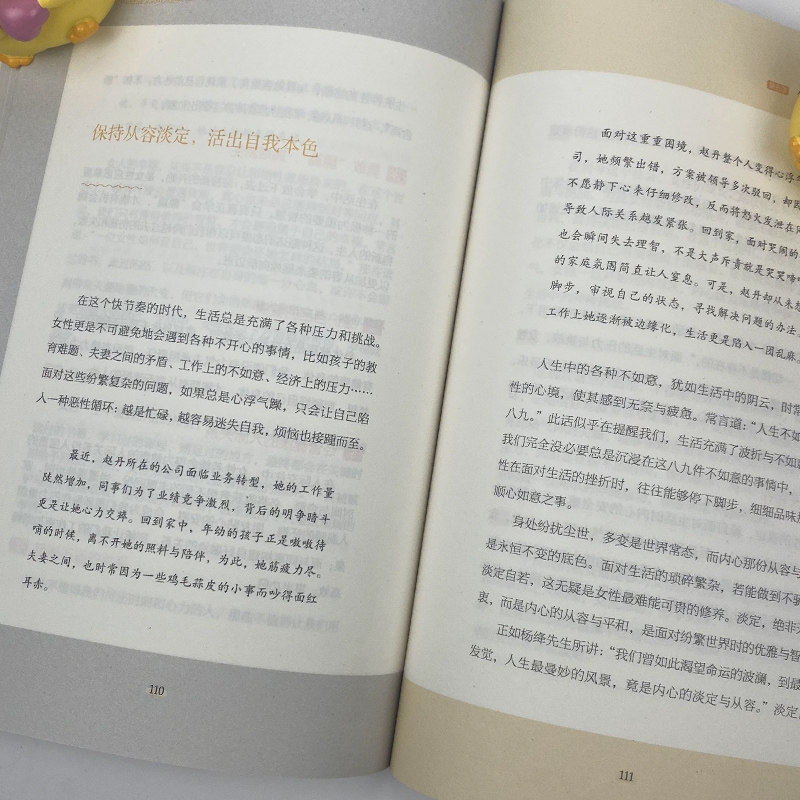 保持从容淡定，活出自我本色
在这个快节奏的时代，生活总是充满了各种压力和挑战。
女性更是不可避免地会遇到各种不开心的事情，比如孩子的教
育难题、夫妻之间的矛盾、工作上的不如意、经济上的压力……
面对这些纷繁复杂的问题，如果总是心浮气躁，只会让自己陷
入一种恶性循环：越是忙碌，越容易迷失自我，烦恼也接踵而至。
最近，赵丹所在的公司面临业务转型，她的工作量
陡然增加，同事们为了业绩竞争激烈，背后的明争暗斗
更是让她心力交瘁。回到家中，年幼的孩子正是嗷嗷待
哺的时候，离不开她的照料与陪伴，为此，她筋疲力尽。
夫妻之间，也时常因为一些鸡毛蒜皮的小事而吵得面红
耳赤。
110
面对这重重困境，赵丹整个人变得心浮
司，她频繁出错，方案被领导多次驳回，却
不愿静下心来仔细修改，反而将怒火发泄在
导致人际关系越发紧张。回到家，面对哭闹的
也会瞬间失去理智，不是大声斥责就是哭哭啼
的家庭氛围简直让人窒息。可是，赵丹却从未
脚步，审视自己的状态，寻找解决问题的办法
工作上她逐渐被边缘化，生活更是陷入一团乱麻
人生中的各种不如意，犹如生活中的阴云，时常
性的心境，使其感到无奈与疲惫。常言道：“人生不如
八九。”此话似乎在提醒我们，生活充满了波折与不如
我们完全没必要总是沉浸在这八九件不如意的事情中，
性在面对生活的挫折时，往往能够停下脚步，细细品味
顺心如意之事。
身处纷扰尘世，多变是世界常态，而内心那份从容与
是永恒不变的底色。面对生活的琐碎繁杂，若能做到不
淡定自若，这无疑是女性最难能可贵的修养。淡定，绝非
衷，而是内心的从容与平和，是面对纷繁世界时的优雅与智
正如杨绛先生所讲：“我们曾如此渴望命运的波澜，到最
发觉，人生最曼妙的风景，竟是内心的淡定与从容。”淡定
111